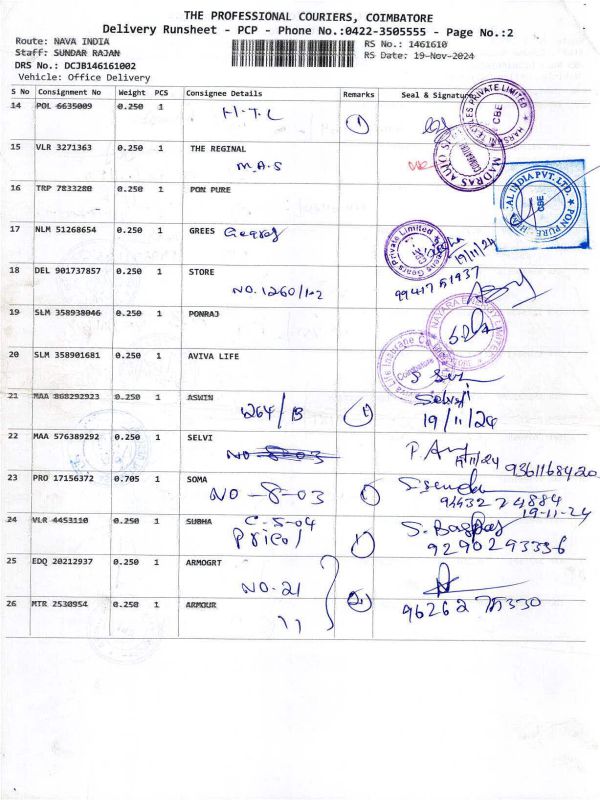 THE PROFESSIONAL COURIERS, COIMBATORE
Delivery Runsheet - PCP - Phone No.:0422-3505555 - Page No.:2
Route: NAVA INDIA
Staff: SUNDAR RAJAN
DRS No.: DCJB146161002
Vehicle: Office Delivery
RS No.: 1461610
RS Date: 19-Nov-2024
S No Consignment No Weight PCS Consignee Details Remarks Seal & Signature
14 POL 6635009 0.250 1 H.T.L 1
15 VLR 3271363 0.250 1 THE REGINAL
M.A.S
MADRAS AUTO
16 TRP 7833280 0.250 1 PON PURE
PON PURE
INDIA PVT. LTD.
CBE
17 NLM 51268654 0.250 1 GREES Gears
Gears Private Limited
19/11/24
18 DEL 901737857 0.250 1 STORE
NO.1260/1+2
9941751937
19 SLM 358938046 0.250 1 PONRAJ
20 SLM 358901681 0.250 1 AVIVA LIFE
Coimbatore
21 MAA 868292923 0.250 1 ASWIN
1264/B 1
19/11/24
22 MAA 576389292 0.250 1 SELVI
NO-8-03
9361168420
23 PRO 17156372 0.705 1 SOMA
NO-8-03 1
9443224884
19-11-24
24 VLR 4453110 0.250 1 SUBHA C-5-04
Pricol 1
9290293336
25 EDQ 20212937 0.250 1 ARMOGRT
NO.21
26 MTR 2530954 0.250 1 ARMOUR
11 2
9626275330